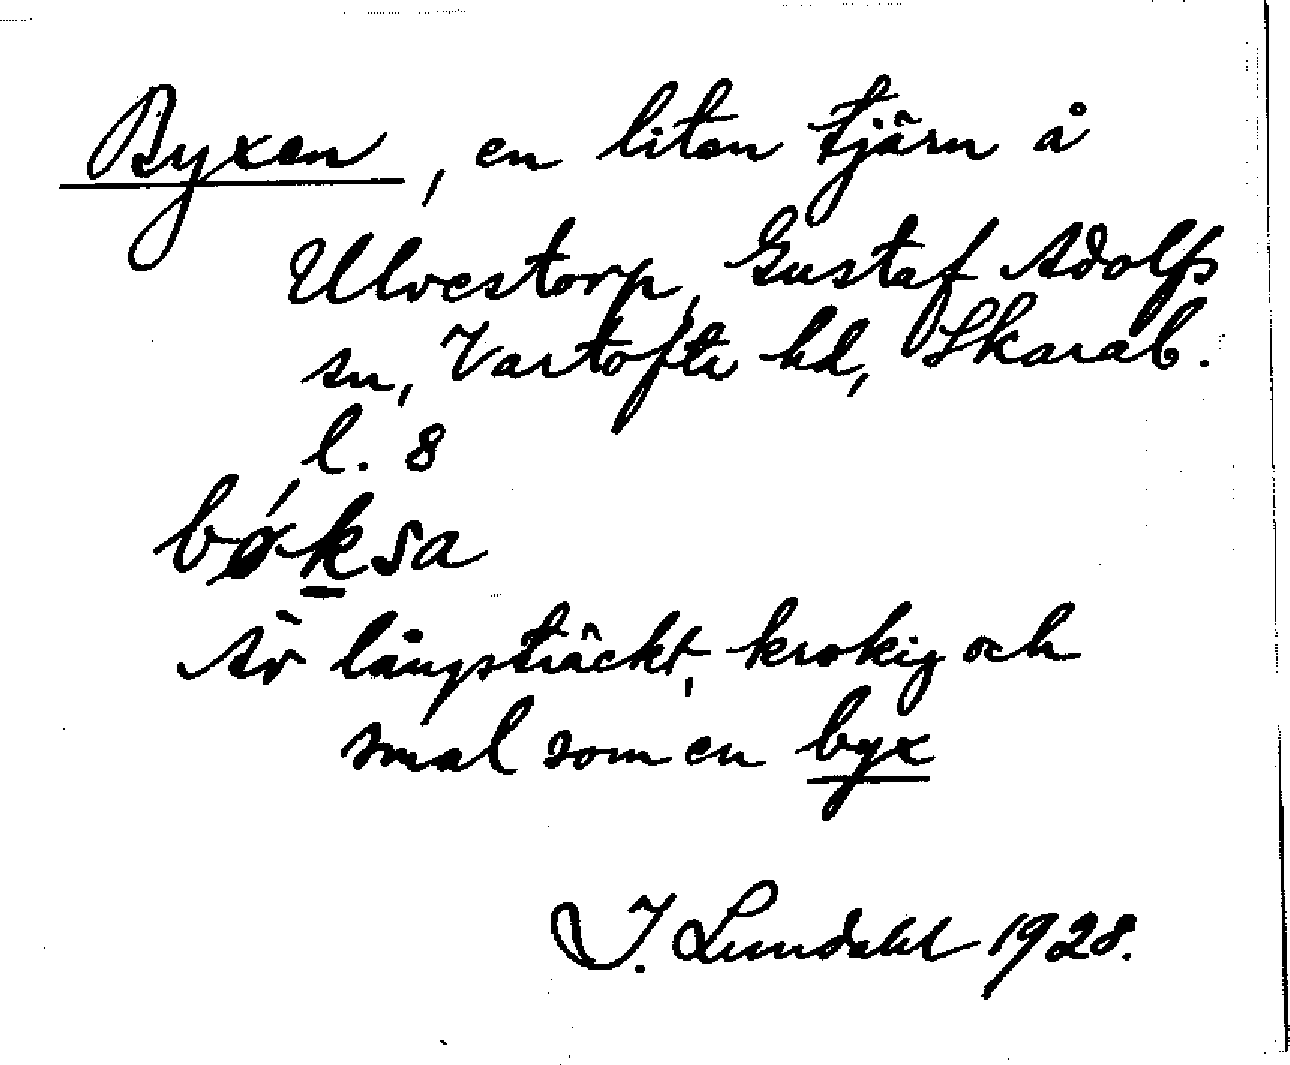 Byxen, en liten tjärn å
Ulvestorp, Gustaf Adolfs
sn, Vartofte hd, Skarab.
l. 8
bǿksa
Är långsträckt, krokig och
smal som en byx
I. Lundahl 1928.